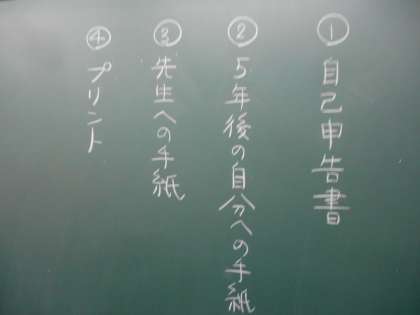 ① 自己申告書
② 5年後の自分への手紙
③ 先生への手紙
④ プリント